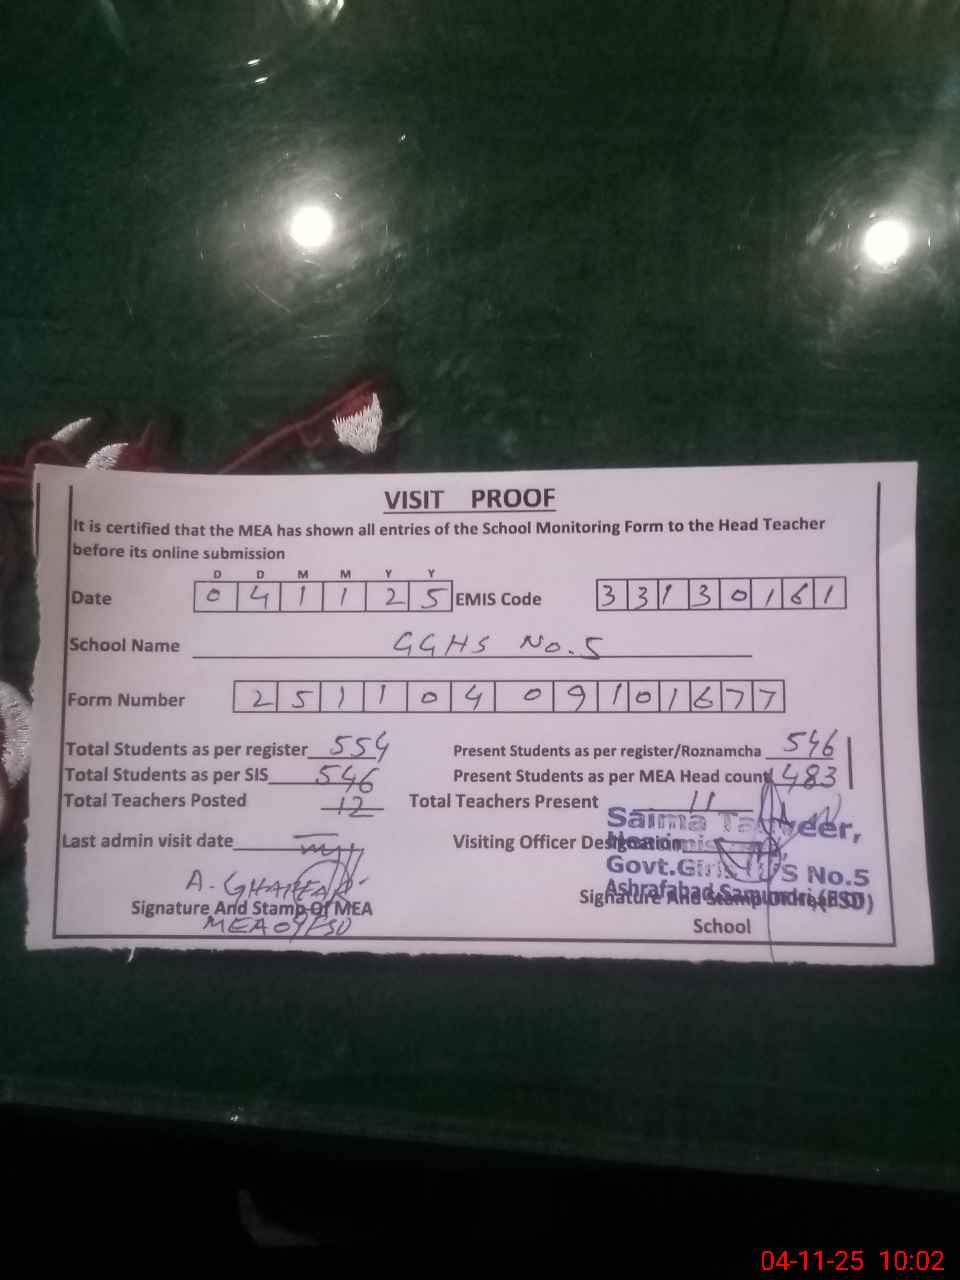 VISIT PROOF
It is certified that the MEA has shown all entries of the School Monitoring Form to the Head Teacher
before its online submission
D D M M Y Y
Date 0 4 1 1 2 5 EMIS Code 3 3 1 3 0 1 6 1
School Name GGHS No.5
Form Number 2 5 1 1 0 4 0 9 1 0 1 6 7 7
Total Students as per register 554 Present Students as per register/Roznamcha 546
Total Students as per SIS 546 Present Students as per MEA Head count 483
Total Teachers Posted 12 Total Teachers Present 11
Saima
Last admin visit date Visiting Officer Designation
Govt.Girls H/S No.5
A. GHAFFAR
Ashrafabad Samundri (FSD)
Signature And Stamp Of MEA Signature And Stamp Of Head
MEA 09 FSD School
04-11-25 10:02